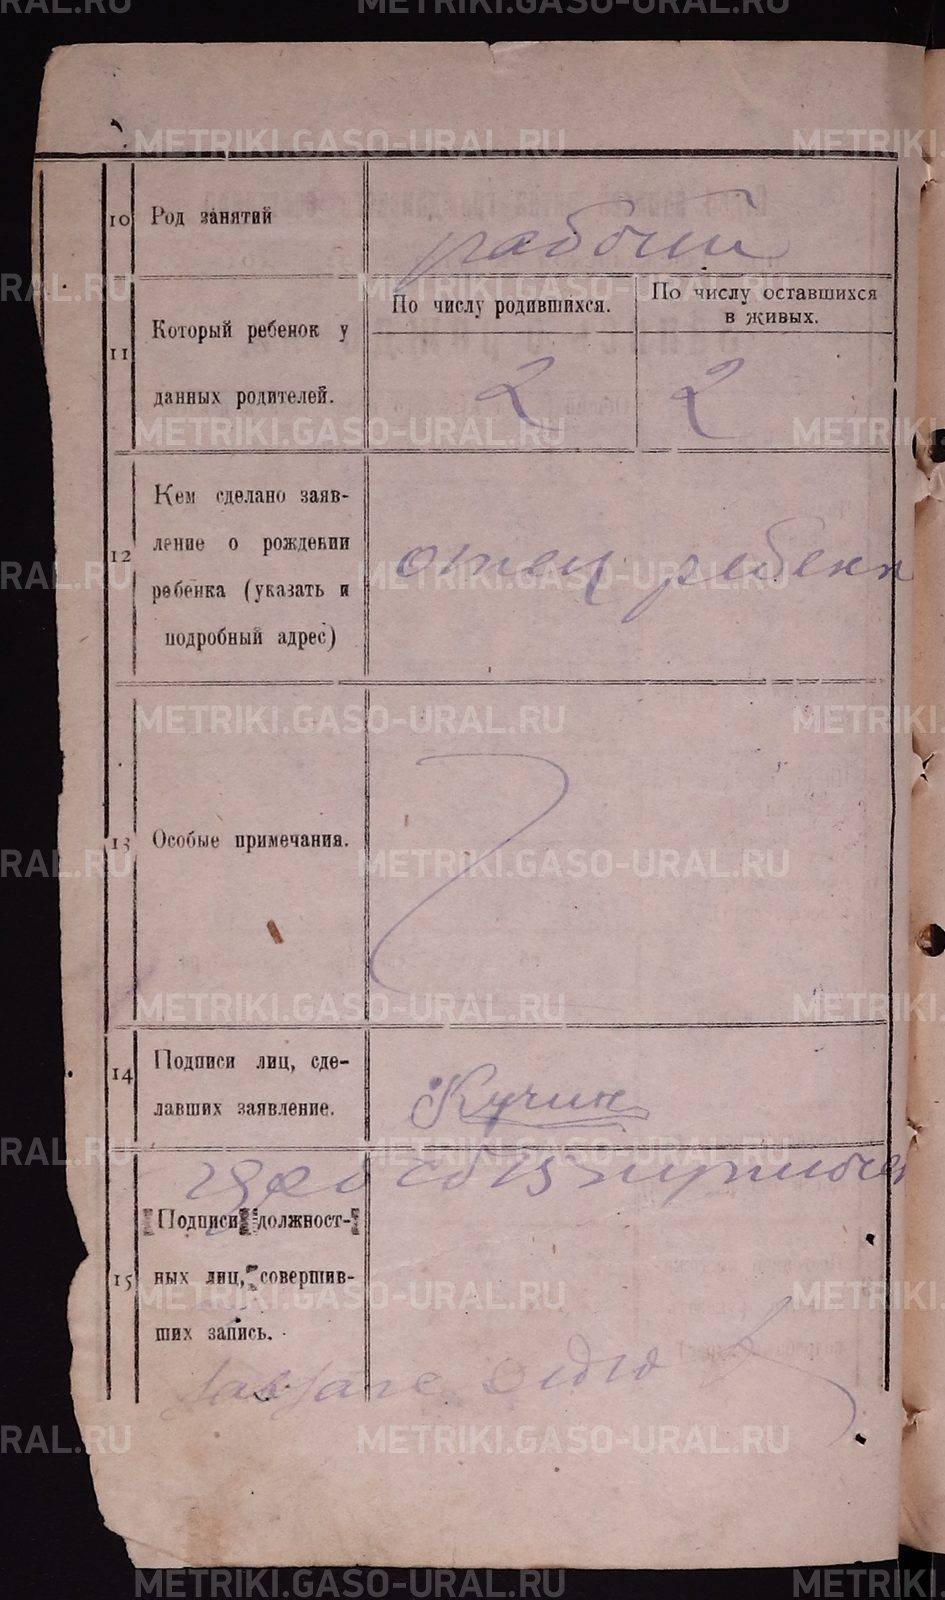 METRIKI.GASO-URAL.RU
10
Род занятий
рабочий
11
Который ребенок у
данных родителей.
По числу родившихся.
По число оставшихся
в живых.
2
2
12
Кем сделано заяв-
ление о рождении
ребенка (указать и
подробный адрес)
отец ребенк
13
Особые примечания.
14
Подписи лиц, сде-
лавших заявление.
Кучин
15
Подписи должност-
ных лиц, совершив-
ших запись.